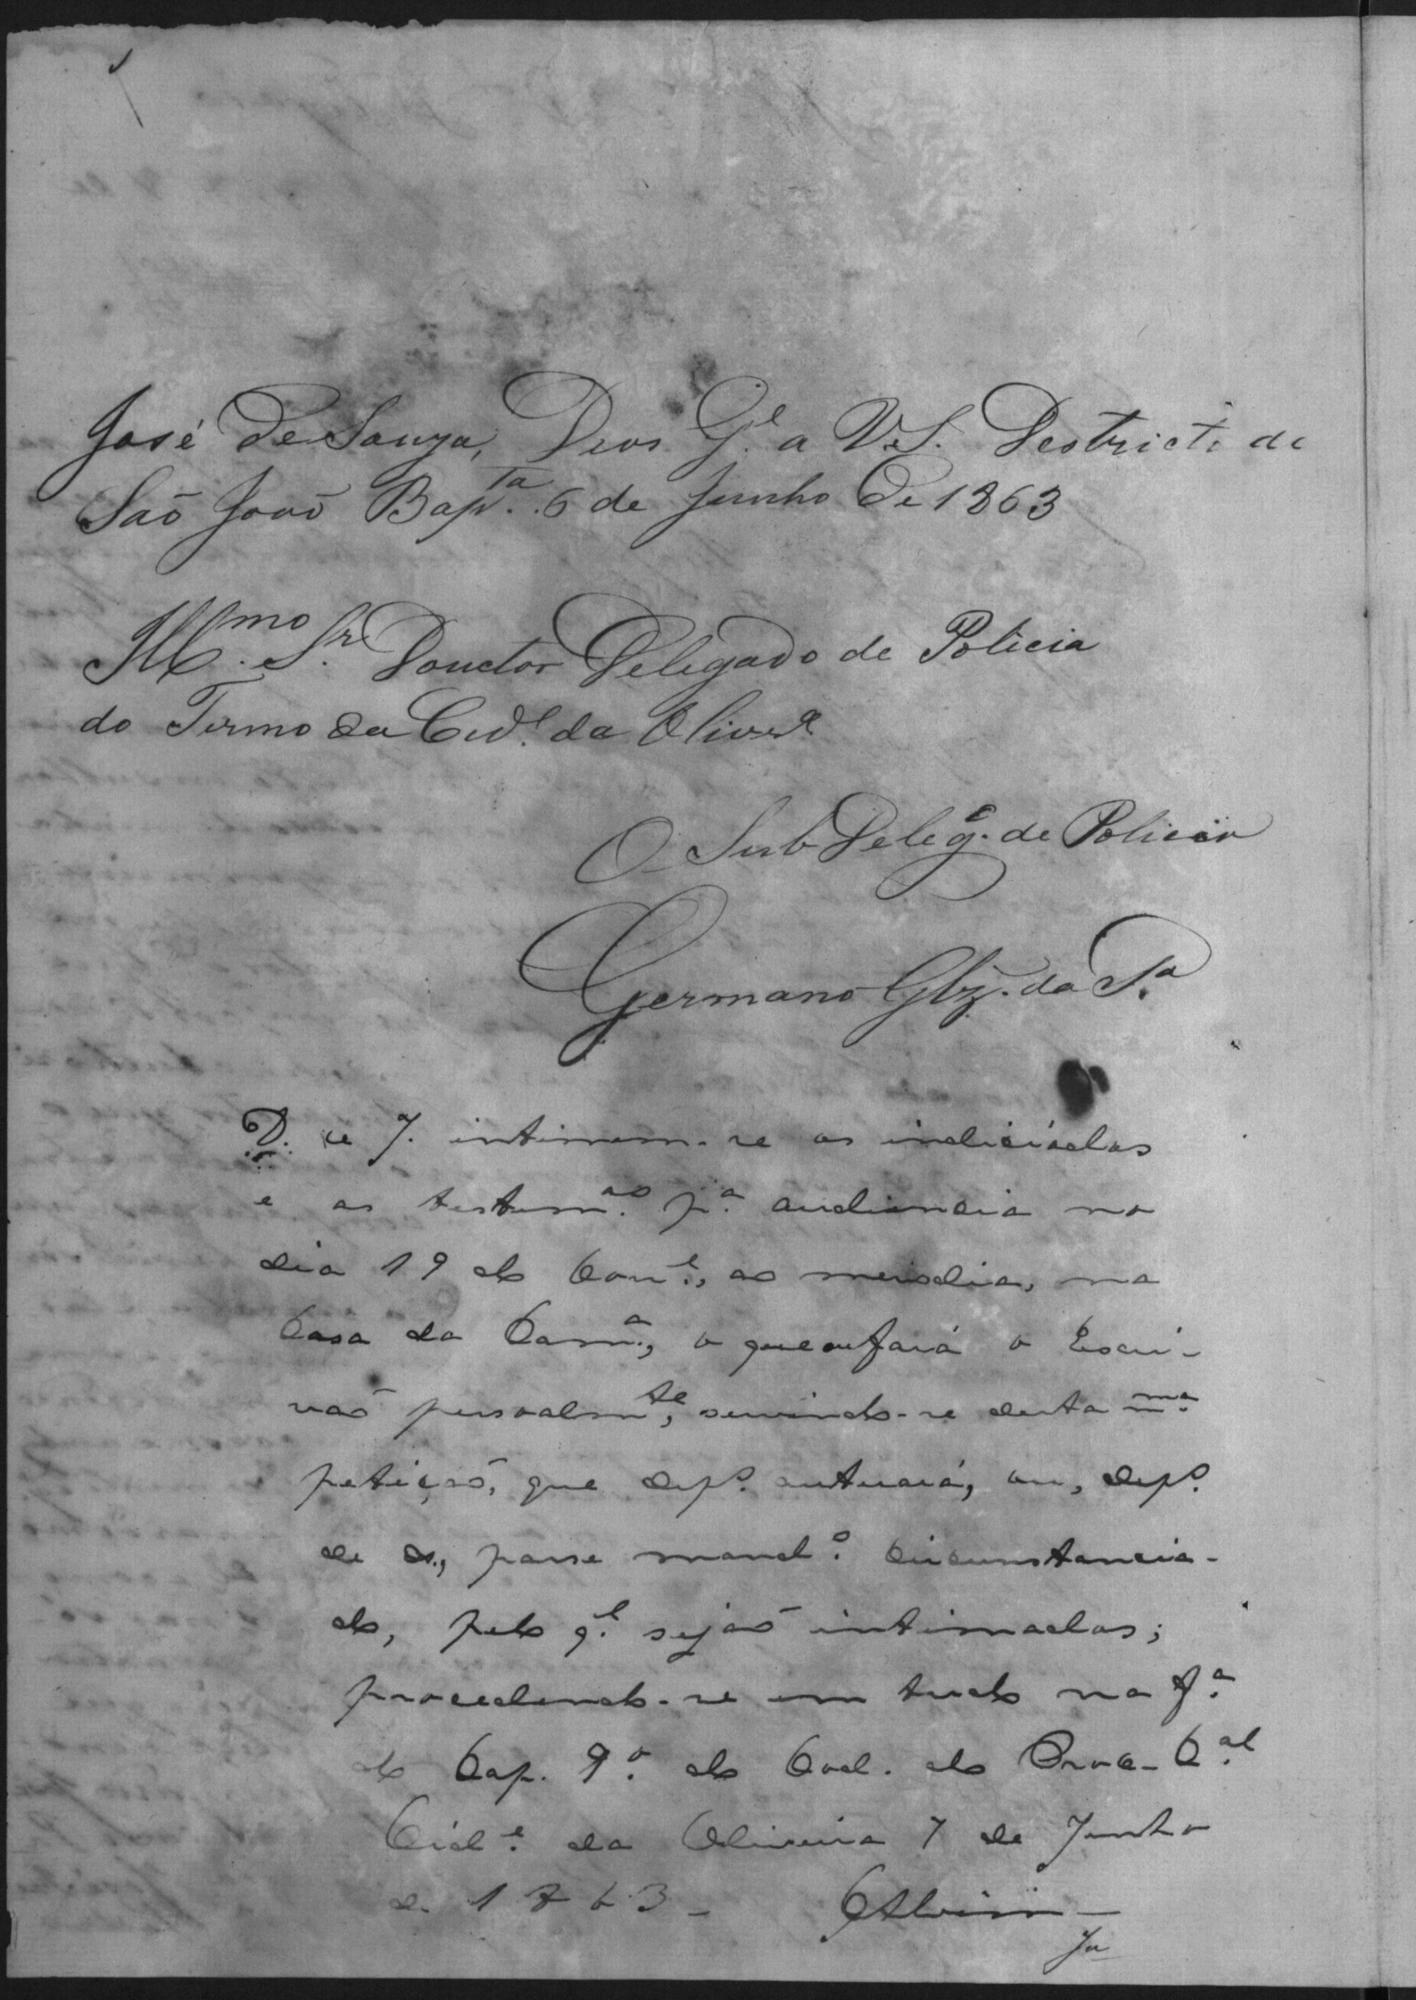 José de Souza, Deos G.e a V.S. Destricto de
São João Bap.ta 6 de Junho de 1863
Ill.mo Sr. Douctor Delegado de Policia
do Termo da Cid.e da Olivr.a
O Sub Deleg.o de Policia
Germano Glz. da S.a
D. e J. intimem-se os indiciados
e as testem.as p.a audiencia no
dia 19 do Corr.e, ao meio dia, na
Casa da Cam.a, o que fará o Escri-
vão pessoalm.te, servindo-se desta m.ma
petição, que dep.s autuará, ou, dep.s
de d., passe mand.o circumstancia-
do, pelo q.l sejão intimados;
procedendo-se em tudo na f.a
do Cap. 9.o do Cod. do Proc. C.al
Cid.e da Oliveira 7 de Junho
de 1863 - Alvim